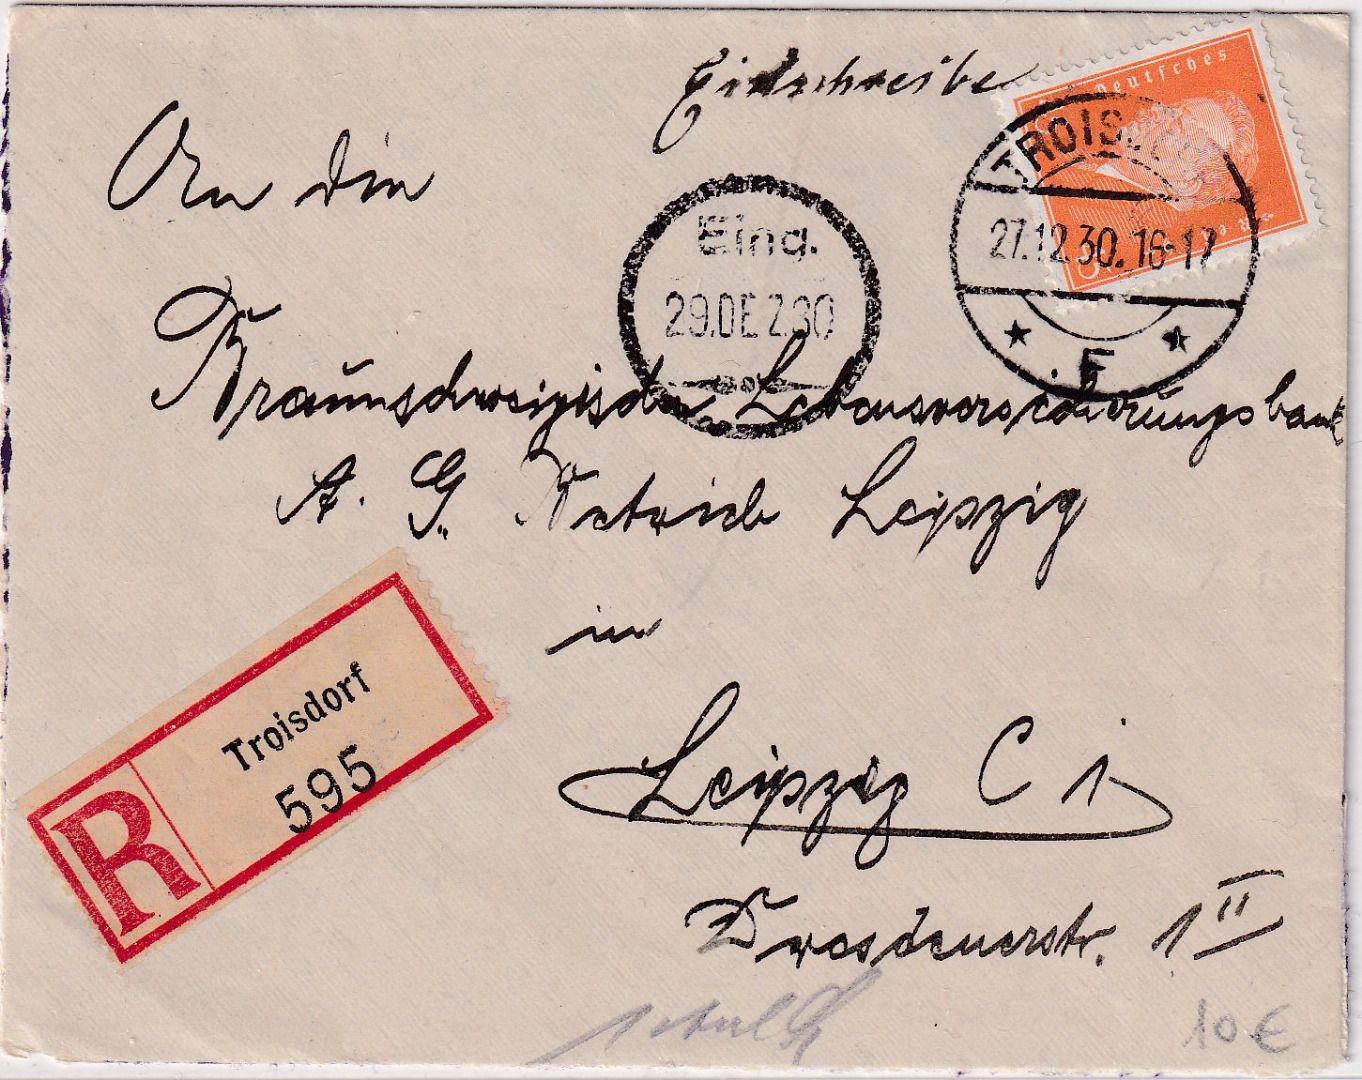 Einschreibe
Deutsches
TROISD
27.12.30.16-17
* F *
Eing.
29.DEZ.30
An die
Braunschweigische Lebensversicherungsbank
A. G. Betrieb Leipzig
in
Leipzig C 1
Dresdenerstr. 1 II
R
Troisdorf
595
10 €